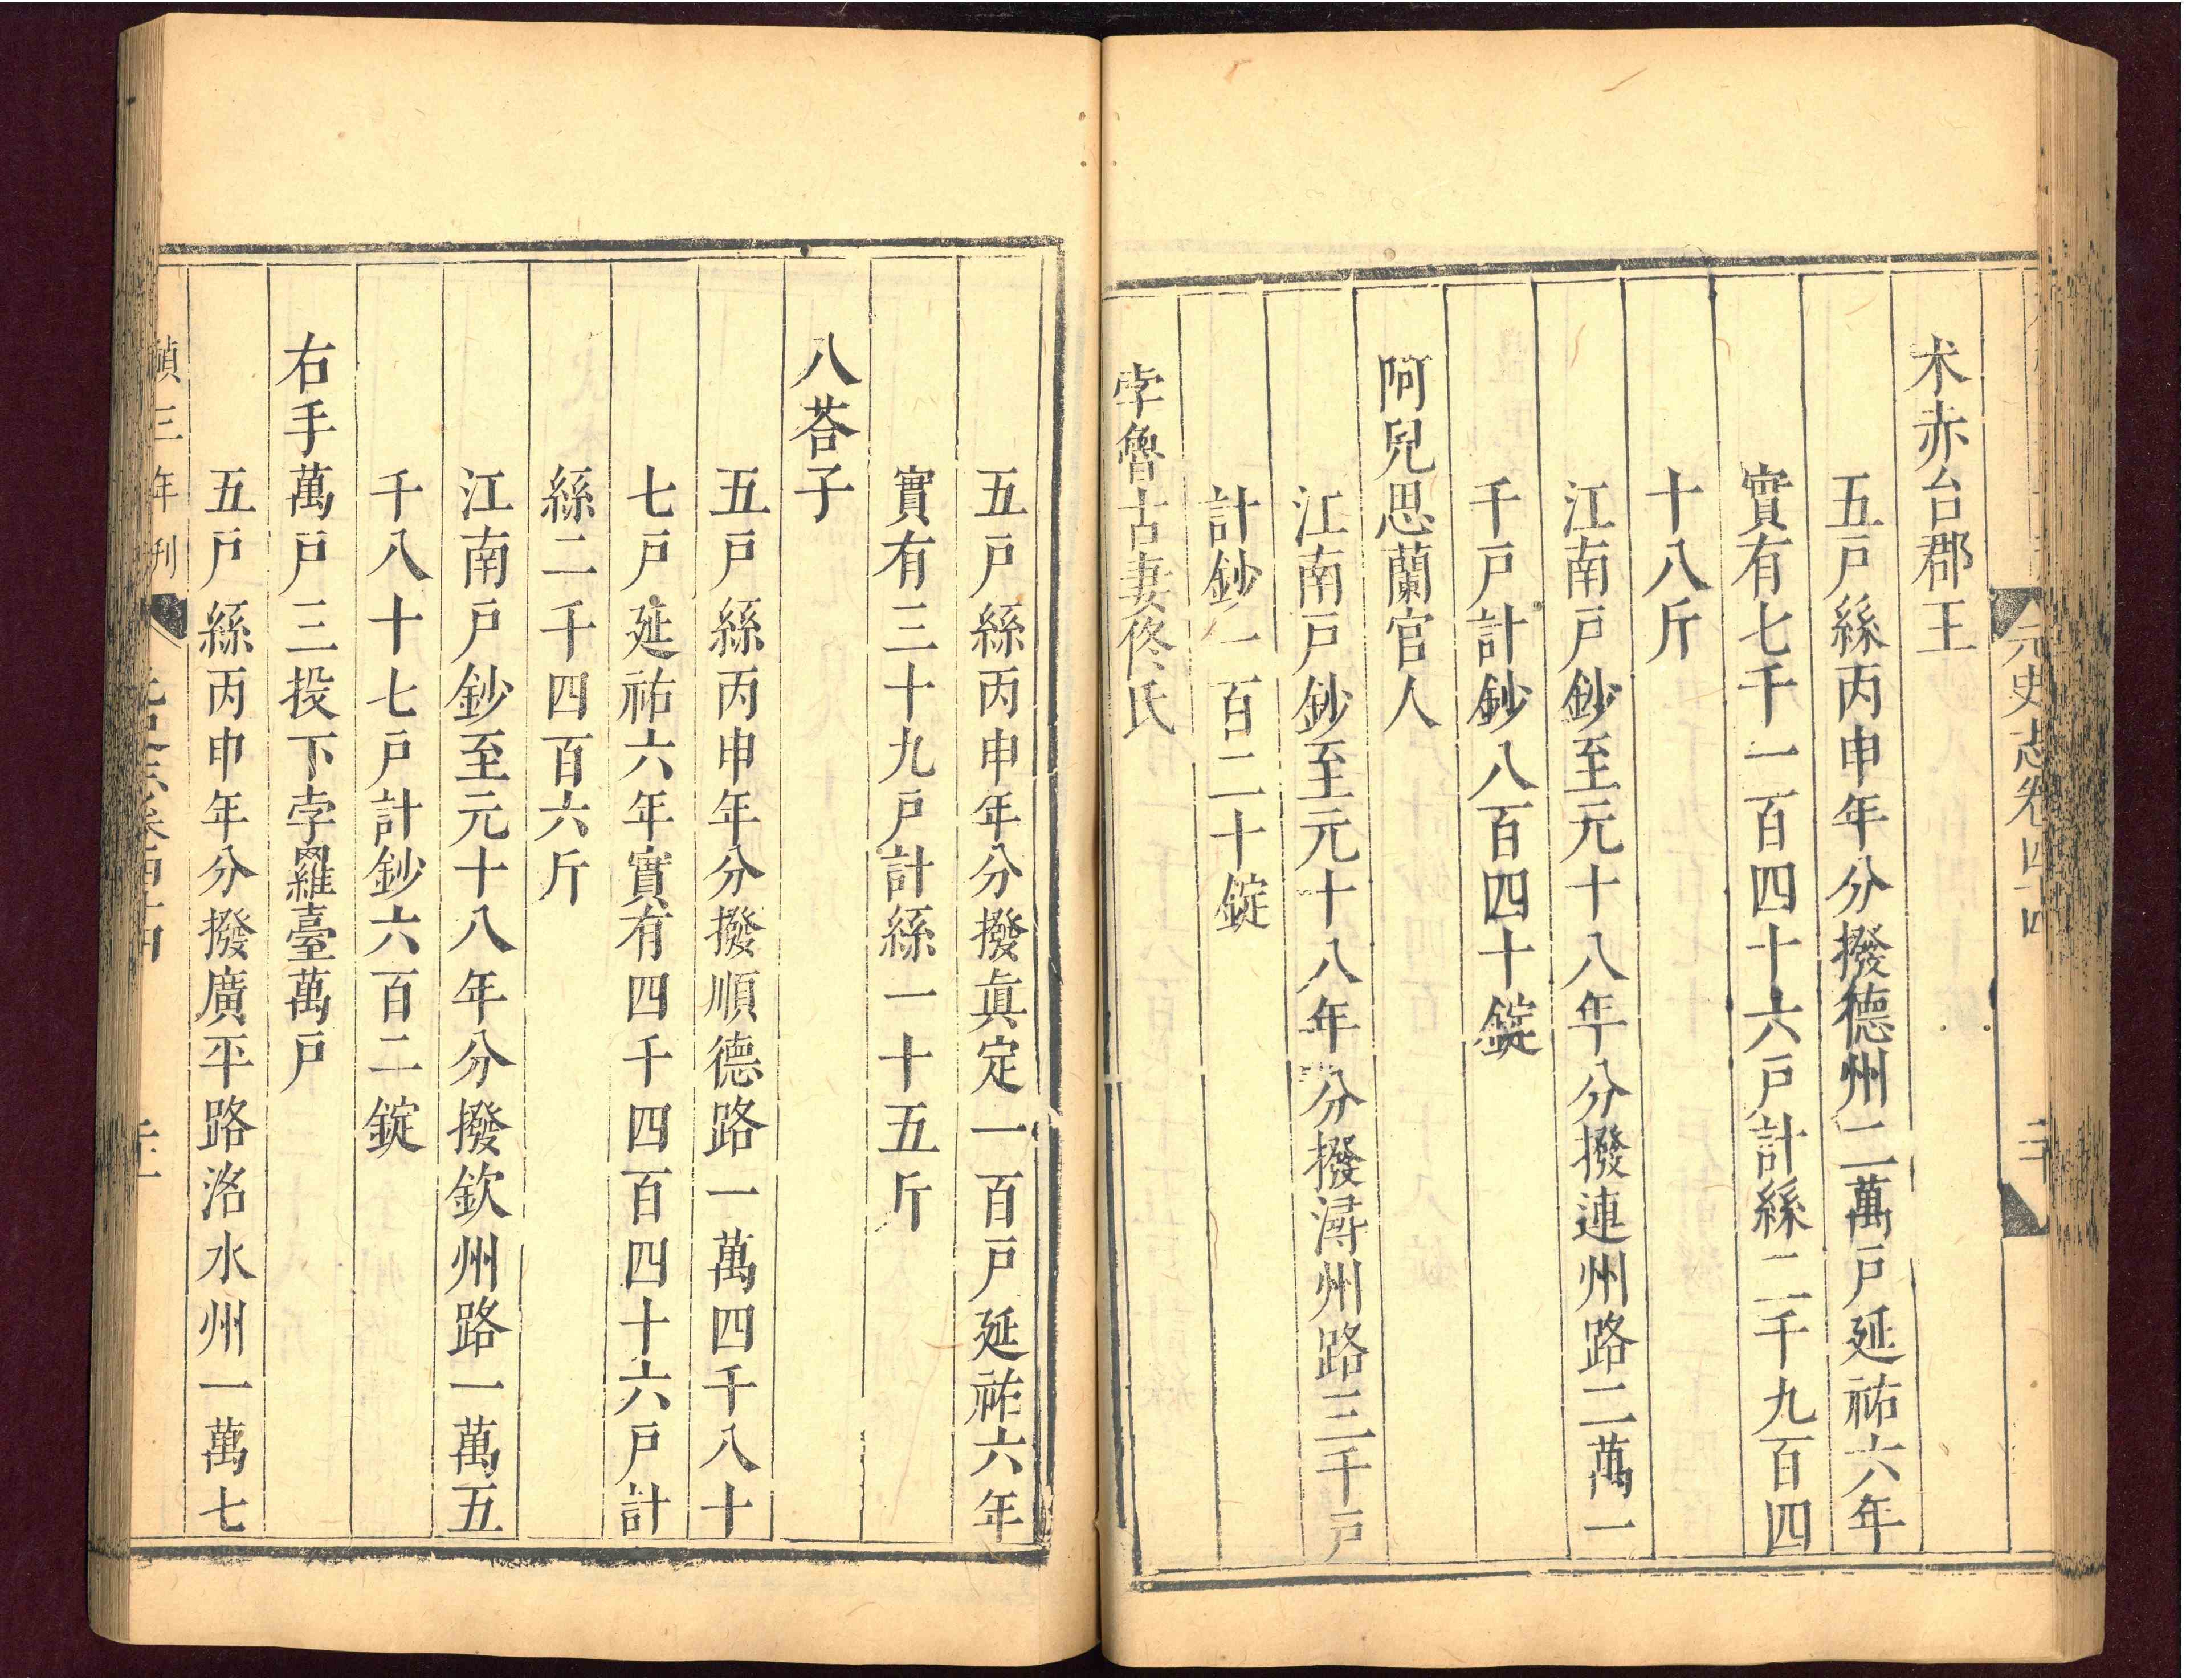 元史志卷四十四
二十
术赤台郡王
五戸絲丙申年分撥德州二萬戸延祐六年
實有七千一百四十六戸計絲二千九百四
十八斤
江南戸鈔至元十八年分撥連州路二萬一
千戸計鈔八百四十錠
阿兒思蘭官人
江南戸鈔至元十八年分撥潯州路三千戸
計鈔一百二十錠
孛魯古妻佟氏
五戸絲丙申年分撥眞定一百戸延祐六年
實有三十九戸計絲一十五斤
八荅子
五戸絲丙申年分撥順德路一萬四千八十
七戸延祐六年實有四千四百四十六戸計
絲二千四百六斤
江南戸鈔至元十八年分撥欽州路一萬五
千八十七戸計鈔六百二錠
右手萬戸三投下孛羅臺萬戸
五戸絲丙申年分撥廣平路洺水州一萬七
禎三年刊